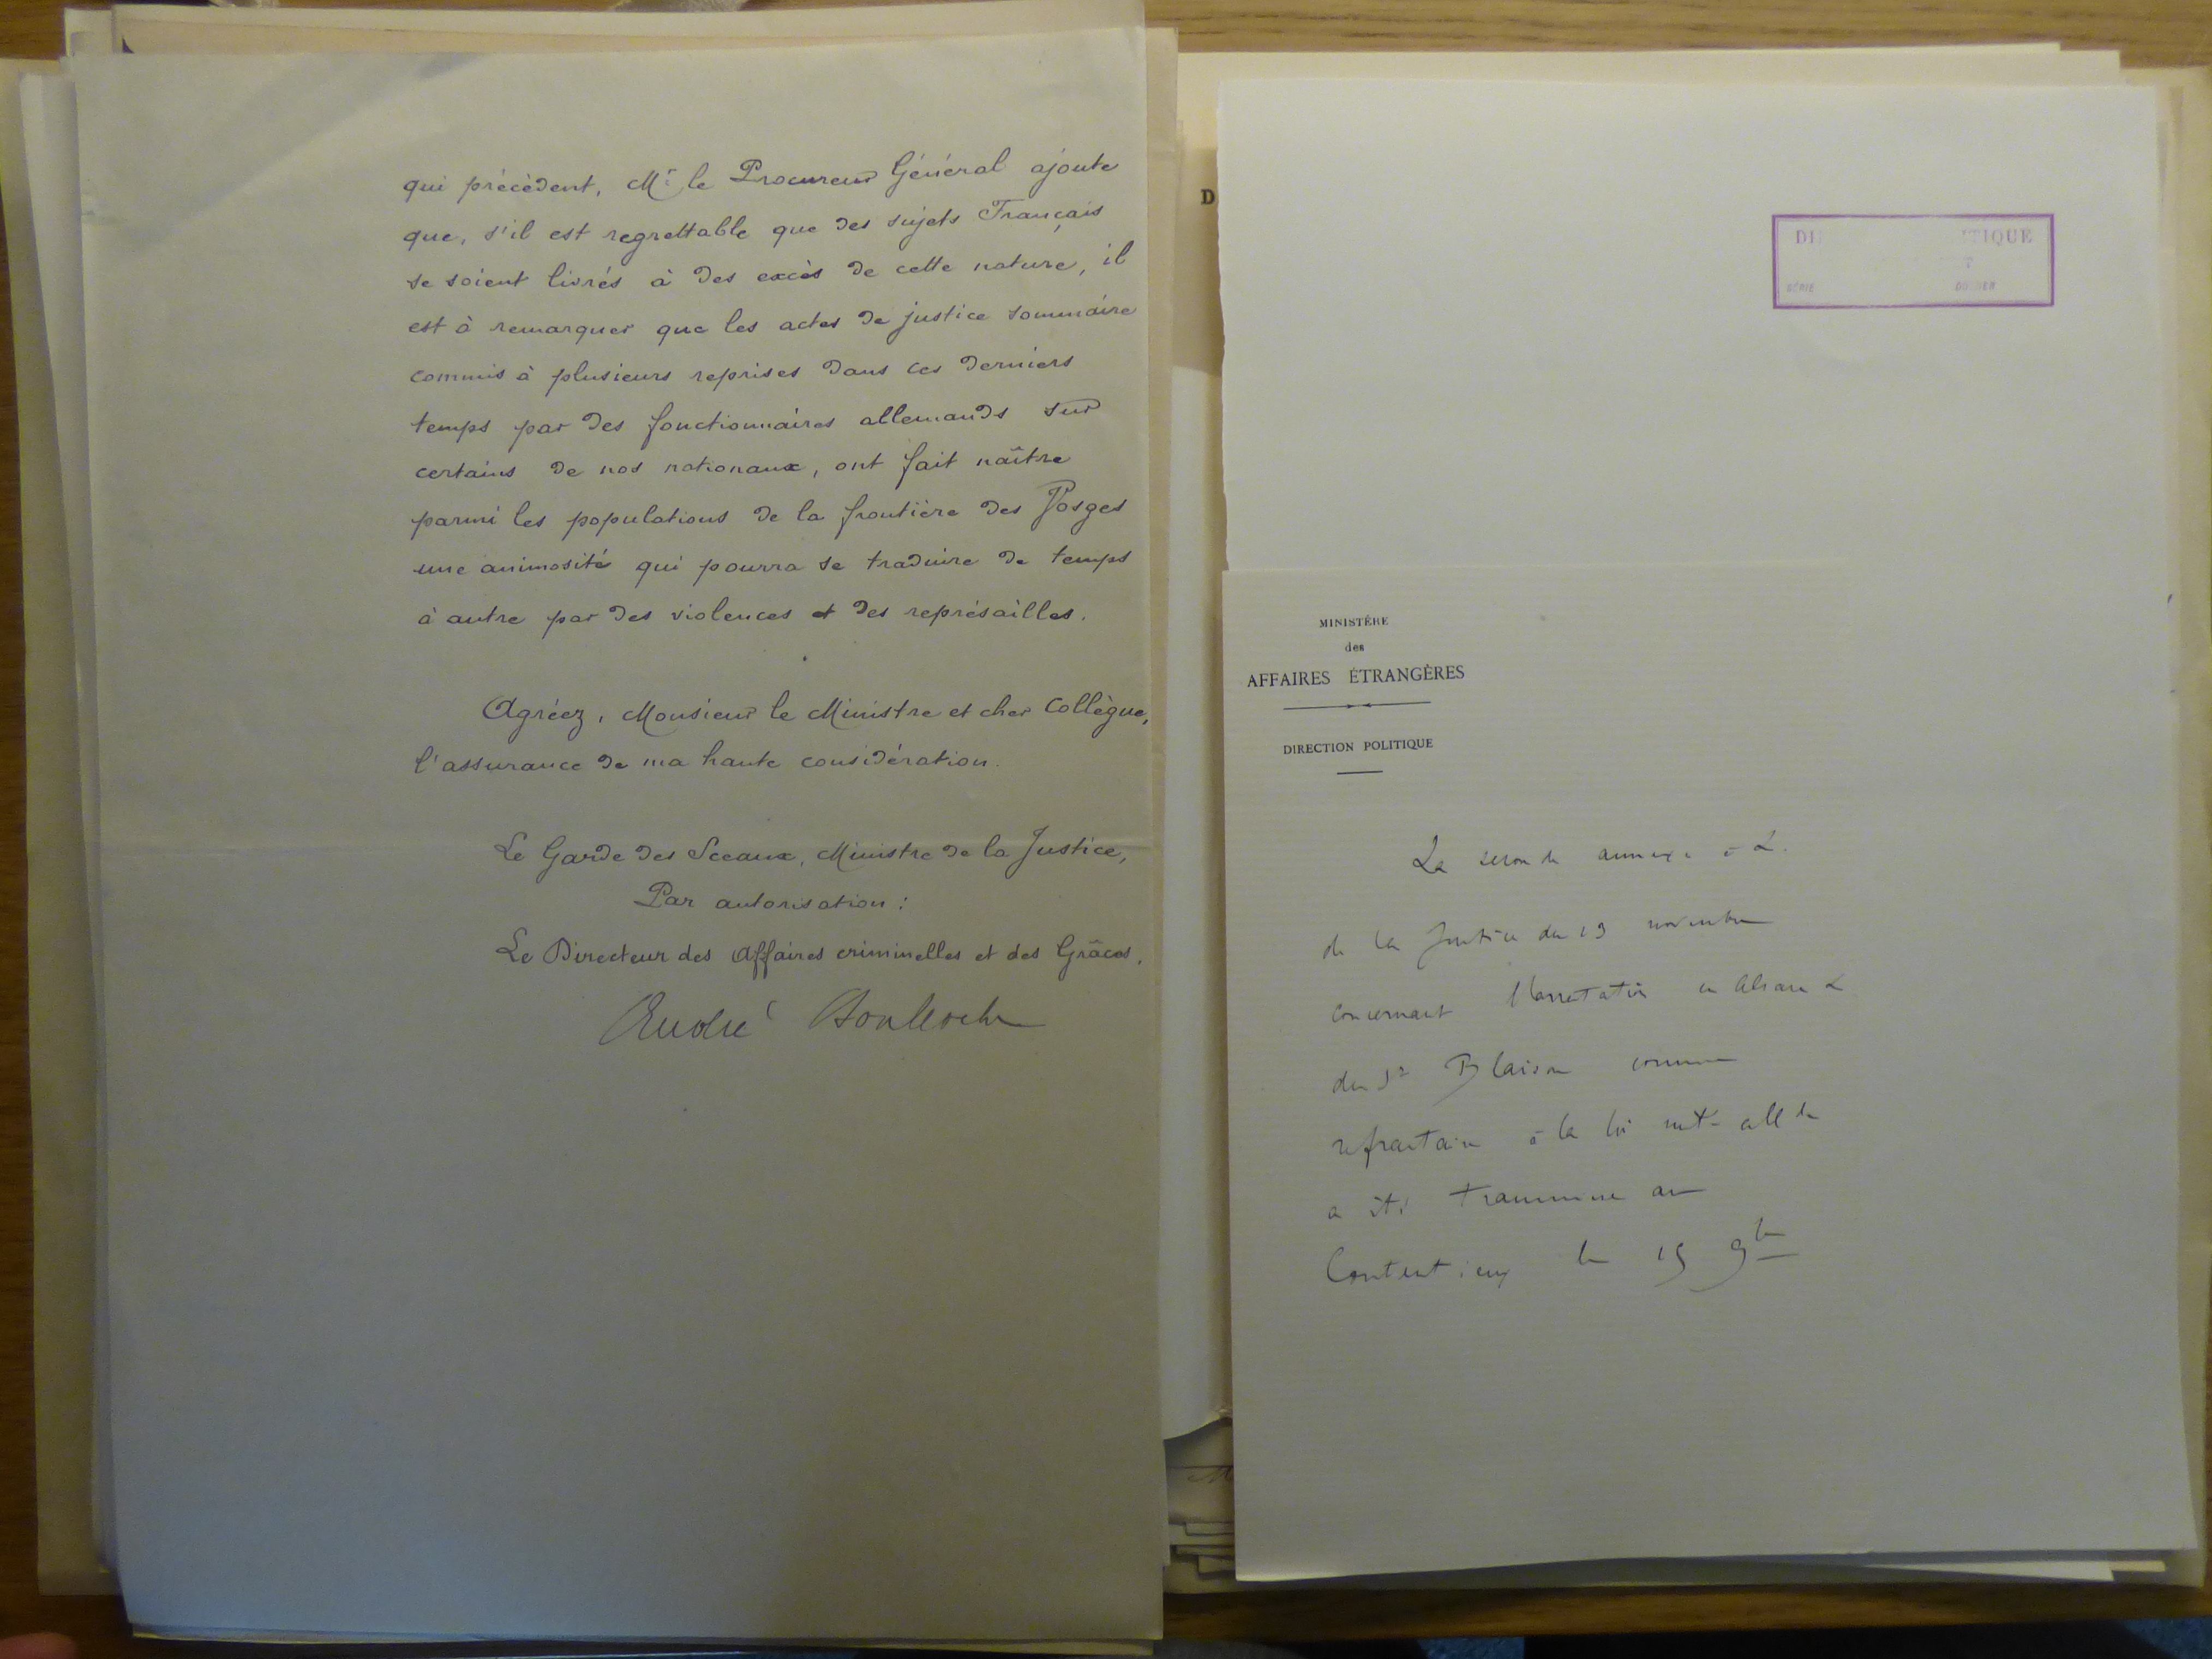 qui précèdent, Mr le Procureur Général ajoute
que, s'il est regrettable que des sujets Français
se soient livrés à des excès de cette nature, il
est à remarquer que les actes de justice sommaire
commis à plusieurs reprises dans ces derniers
temps par des fonctionnaires allemands sur
certains de nos nationaux, ont fait naître
parmi les populations de la frontière des Vosges
une animosité qui pourra se traduire de temps
à autre par des violences et des représailles.
Agréez, Monsieur le Ministre et cher Collègue,
l'assurance de ma haute considération.
Le Garde des Sceaux, Ministre de la Justice,
Par autorisation :
Le Directeur des Affaires criminelles et des Grâces,
André Boulloche
D
DI ITIQUE
SÉRIE DOSSIER
MINISTÈRE
des
AFFAIRES ÉTRANGÈRES
DIRECTION POLITIQUE
La seconde annexe à L.
de la Justice du 13 novembre
concernant l'arrestation en Alsace L
du Sr Blaison comme
refractaire à la loi mre allde
a été transmise au
Contentieux le 15 9bre